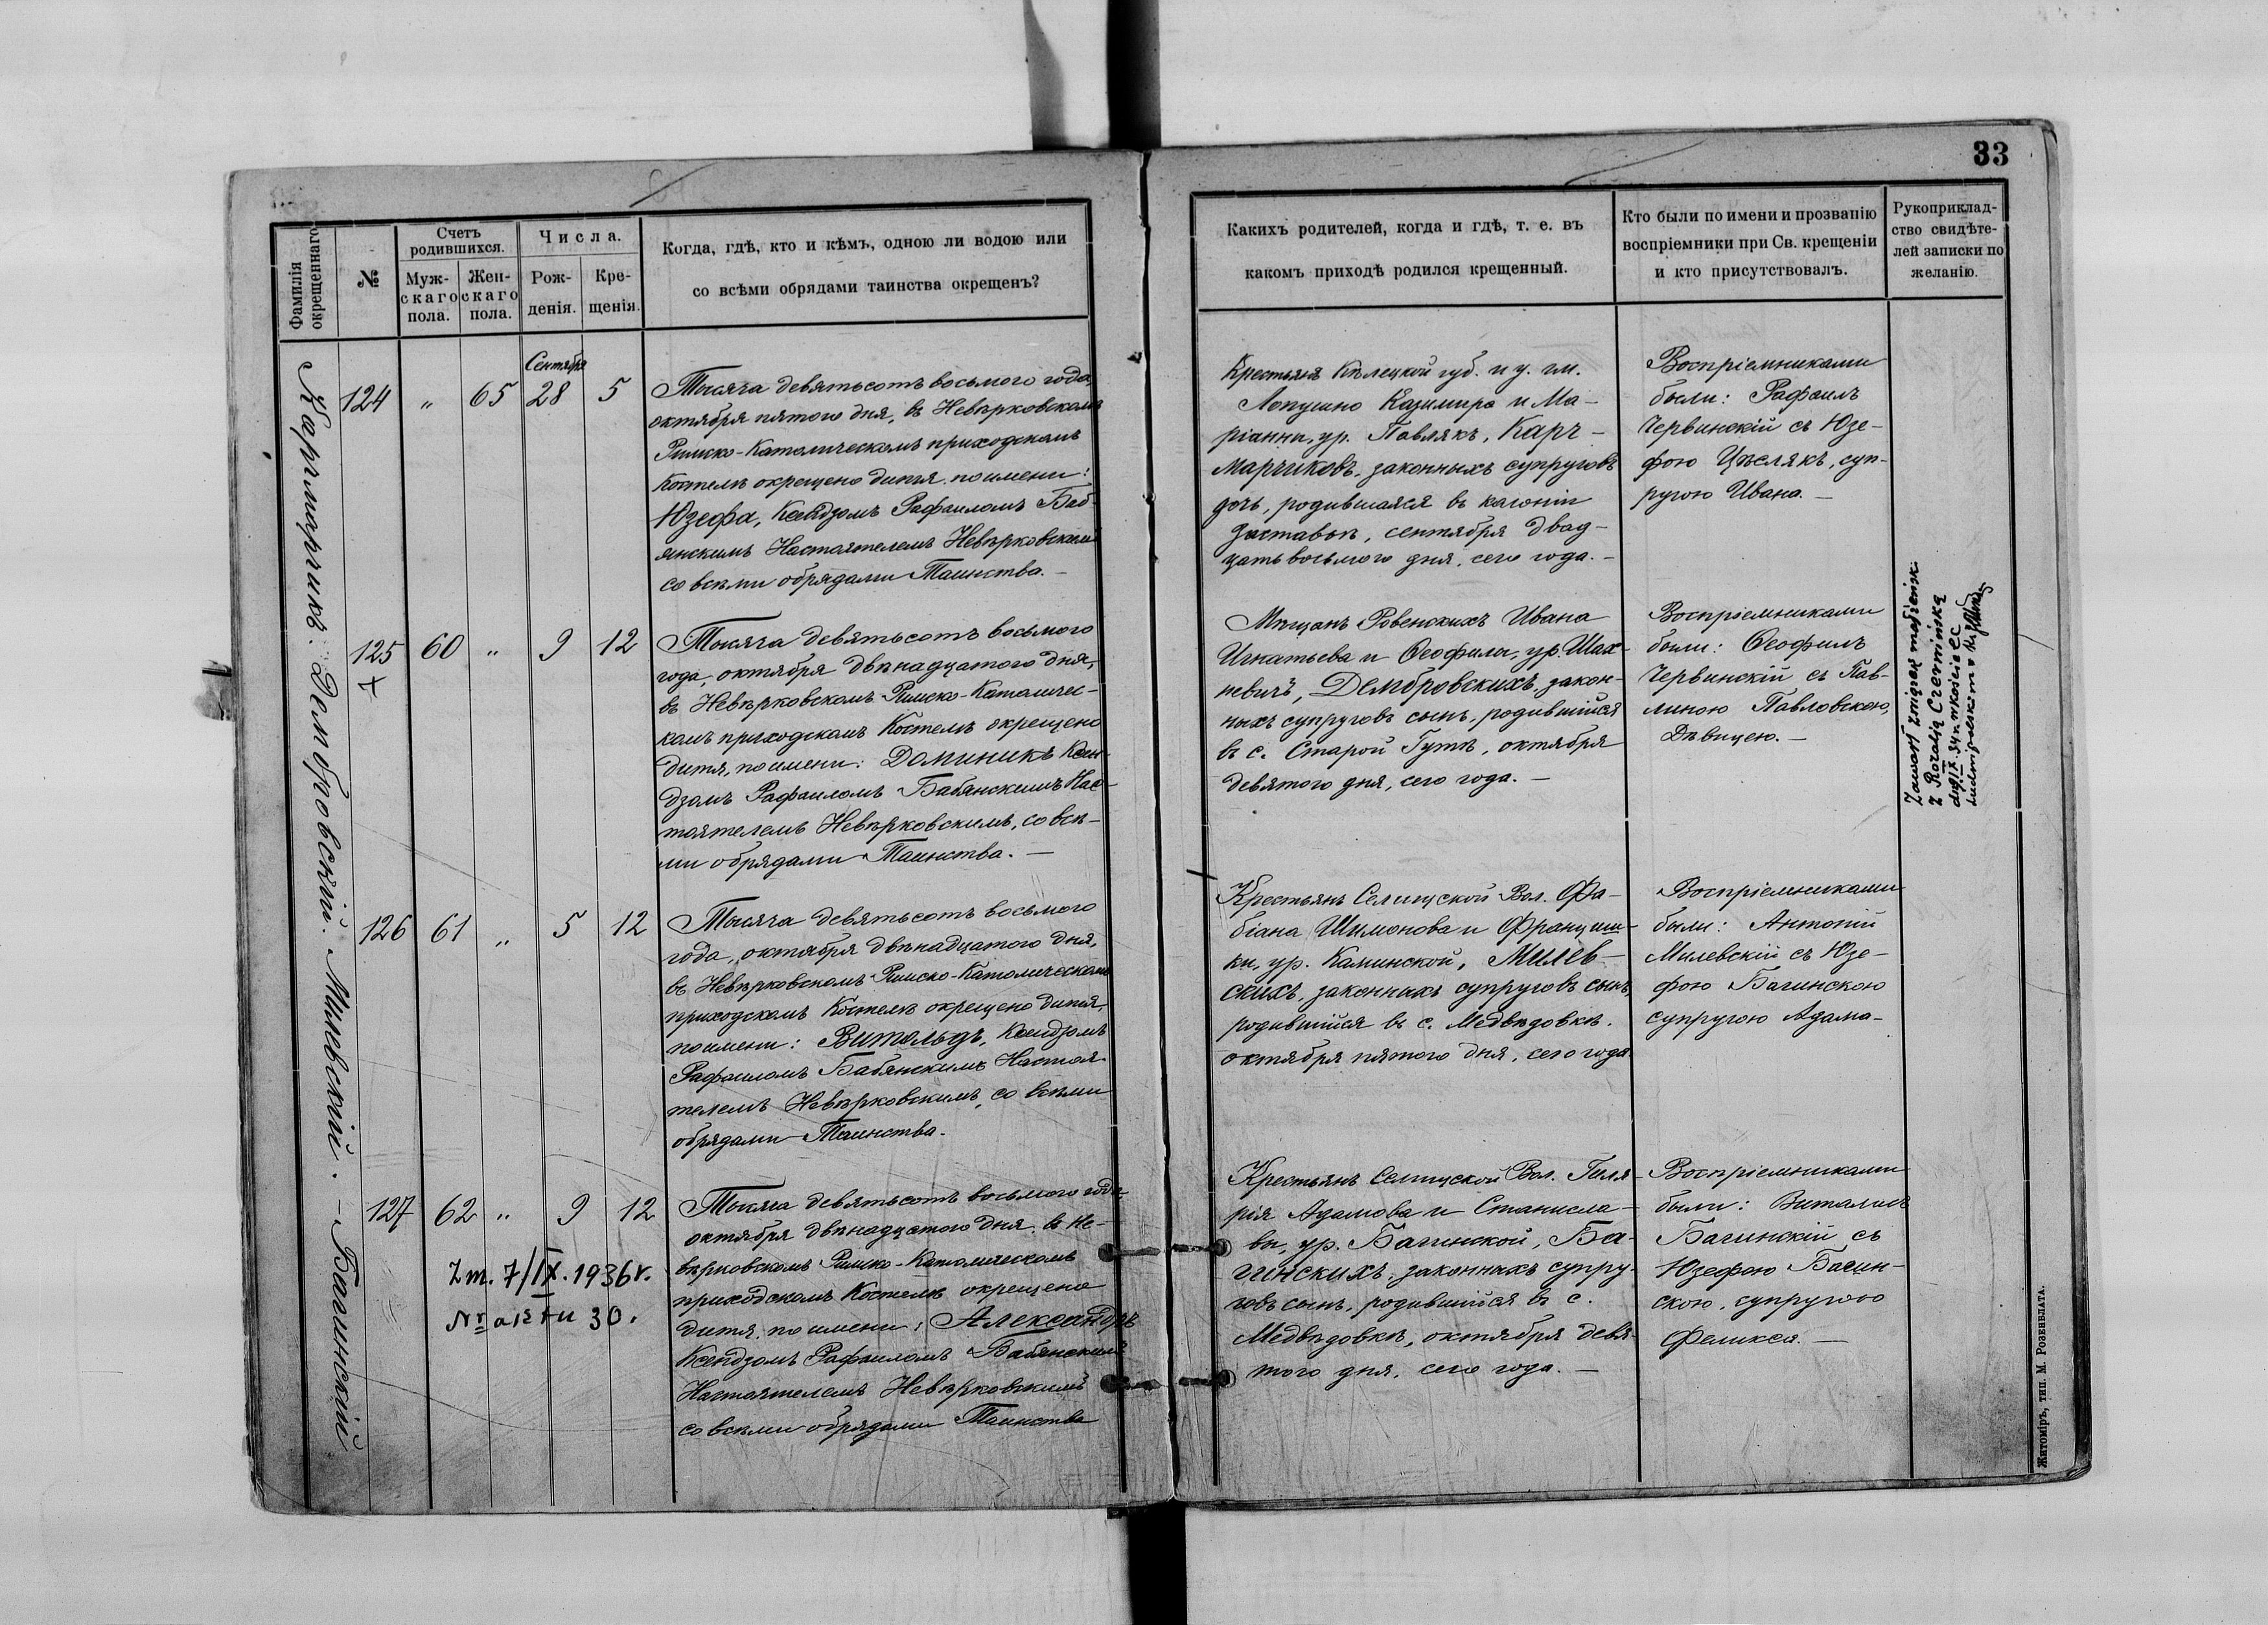 33
Фамилія окрещеннаго
№
Счетъ родившихся.
Муж-
скаго
пола.
Жен-
скаго
пола.
Числа.
Рож-
денія.
Кре-
щенія.
Когда, гдѣ, кто и кѣмъ, одною ли водою или
со всѣми обрядами таинства окрещенъ?
Какихъ родителей, когда и гдѣ, т. е. въ
какомъ приходѣ родился крещенный.
Кто были по имени и прозванію
воспріемники при Св. крещеніи
и кто присутствовалъ.
Рукоприклад-
ство свидѣте-
лей записки по
желанію.
Карчмарчикъ. Дембровскій. Милевскій. – Багинскій
Сентября
124 „ 65 28 5
Тысяча девятьсотъ восьмого года
октября пятого дня, въ Невѣрковскомъ
Римско-Католическомъ приходскомъ
Костелѣ окрещено дитя по имени:
Юзефа, Ксендзомъ Рафаиломъ Баб-
янскимъ Настоятелемъ Невѣрковскимъ
со всѣми обрядами Таинства. –
Крестьянъ Кѣлецкой губ. и у. гм.
Лопушно Казимира и Ма-
ріанны, ур. Павлякъ, Карч-
марчиковъ, законныхъ супруговъ
дочь, родившаяся въ колоніи
Заставье, сентября двад-
цать восьмого дня, сего года. –
Воспріемниками
были: Рафаилъ
Червинскій съ Юзе-
фою Цѣслякъ, суп-
ругою Ивана. –
125 60 „ 9 12
+
Тысяча девятьсотъ восьмого
года, октября двѣнадцатого дня,
въ Невѣрковскомъ Римско-Католичес-
комъ приходскомъ Костелѣ окрещено
дитя, по имени: Доминикъ Ксен-
дзомъ Рафаиломъ Бабянскимъ Нас-
тоятелемъ Невѣрковскимъ, со всѣ-
ми обрядами Таинства. –
Мѣщанъ Ровенскихъ Ивана
Игнатьева и Ѳеофили, ур. Шах-
невичъ, Дембровскихъ, закон-
ныхъ супруговъ сынъ, родившійся
въ с. Старой Гутѣ, октября
девятого дня, сего года. –
Воспріемниками
были: Ѳеофилъ
Червинскій съ Пав-
линою Павловскою,
Дѣвицею. –
Zawarł związek małżeńsk.
z Rozalią Czermińską
126 61 „ 5 12
Тысяча девятьсотъ восьмого
года, октября двѣнадцатого дня,
въ Невѣрковскомъ Римско-Католическомъ
приходскомъ Костелѣ окрещено дитя,
по имени: Витольдъ, Ксендзомъ
Рафаиломъ Бабянскимъ Настоя-
телемъ Невѣрковскимъ, со всѣми
обрядами Таинства.
Крестьянъ Селищской Вол. Фа-
біана Шимонова и Францишк-
ки, ур. Каминской, Милев-
скихъ, законныхъ супруговъ сынъ,
родившійся въ с. Медвѣдовкѣ.
октября пятого дня, сего года
Воспріемниками
были: Антоній
Милевскій съ Юзе-
фою Багинскою
супругою Адама –
127 62 „ 9 12
Zm. 7/IX. 1936 r.
Nr aktu 30.
Тысяча девятьсотъ восьмого года,
октября двѣнадцатого дня въ Не-
вѣрковскомъ Римско-Католическомъ
приходскомъ Костелѣ окрещено
дитя, по имени: Александръ
Ксендзомъ Рафаиломъ Бабянскимъ
Настоятелемъ Невѣрковскимъ
со всѣми обрядами Таинства
Крестьянъ Селищской Вол. Гиля-
рія Адамова и Станисла-
вы, ур. Багинской, Ба-
гинскихъ, законныхъ супру-
говъ сынъ, родившійся въ с.
Медвѣдовкѣ, октября девя-
того дня, сего года. –
Воспріемниками
были: Виталисъ
Багинскій съ
Юзефою Багин-
скою, супругою
Феликса. –
Житоміръ, тип. М. Розенблата.